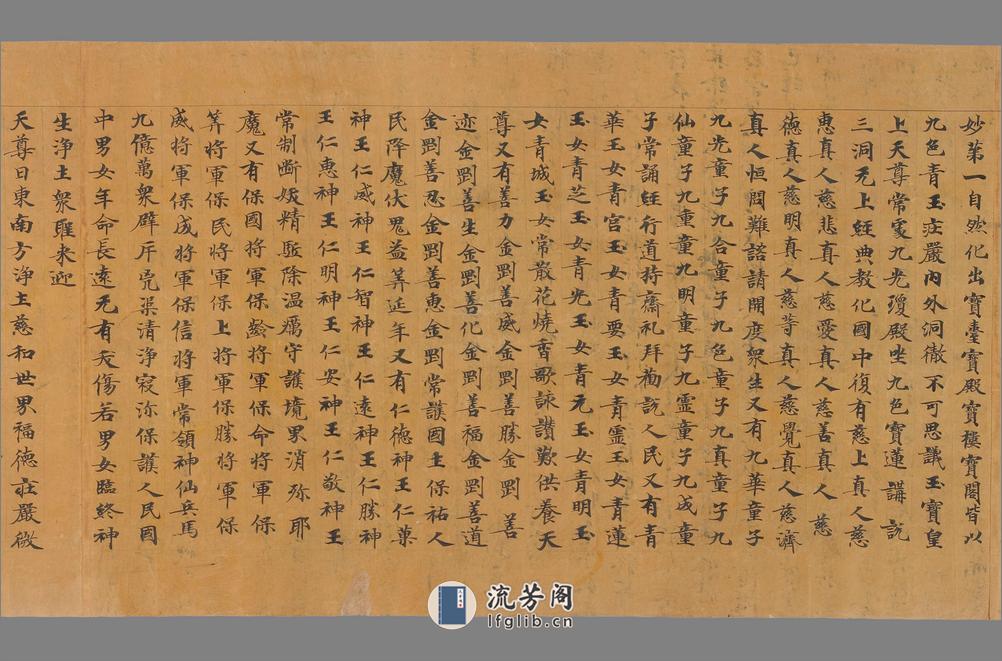 妙第一自然化出寶臺寶殿寶樓寶閣皆以
九色青玉莊嚴內外洞徹不可思議玉寶皇
上天尊常處九光瓊殿坐九色寶蓮講說
三洞无上經典教化國中復有慈上真人慈
惠真人慈悲真人慈愛真人慈善真人慈
德真人慈明真人慈等真人慈覺真人慈濟
真人恒問難諮請開度眾生又有九華童子
九光童子九合童子九色童子九真童子九
仙童子九重童九明童子九靈童子九成童
子常誦經行道持齋礼拜勸說人民又有青
華玉女青宮玉女青要玉女青靈玉女青蓮
玉女青芝玉女青光玉女青元玉女青明玉
女青城玉女常散花燒香歌詠讚歎供養天
尊又有善力金罡善威金罡善勝金罡善
迹金罡善生金罡善化金罡善福金罡善道
金罡善忍金罡善惠金罡常護國土保祐人
民降魔伏鬼益筭延年又有仁德神王仁策
神王仁威神王仁智神王仁遠神王仁勝神
王仁惠神王仁明神王仁安神王仁敬神王
常制斷妖精駈除温癘守護境界消弥耶
魔又有保國將軍保齡將軍保命將軍保
筭將軍保民將軍保上將軍保勝將軍保
威將軍保成將軍保信將軍常領神仙兵馬
九億萬衆辟斥兇渠清浄寂弥保護人民國
中男女年命長遠无有夭傷若男女臨終神
生浄土衆聖来迎
天尊曰東南方浄土慈和世界福德莊嚴微
流芳阁
lfglib.cn